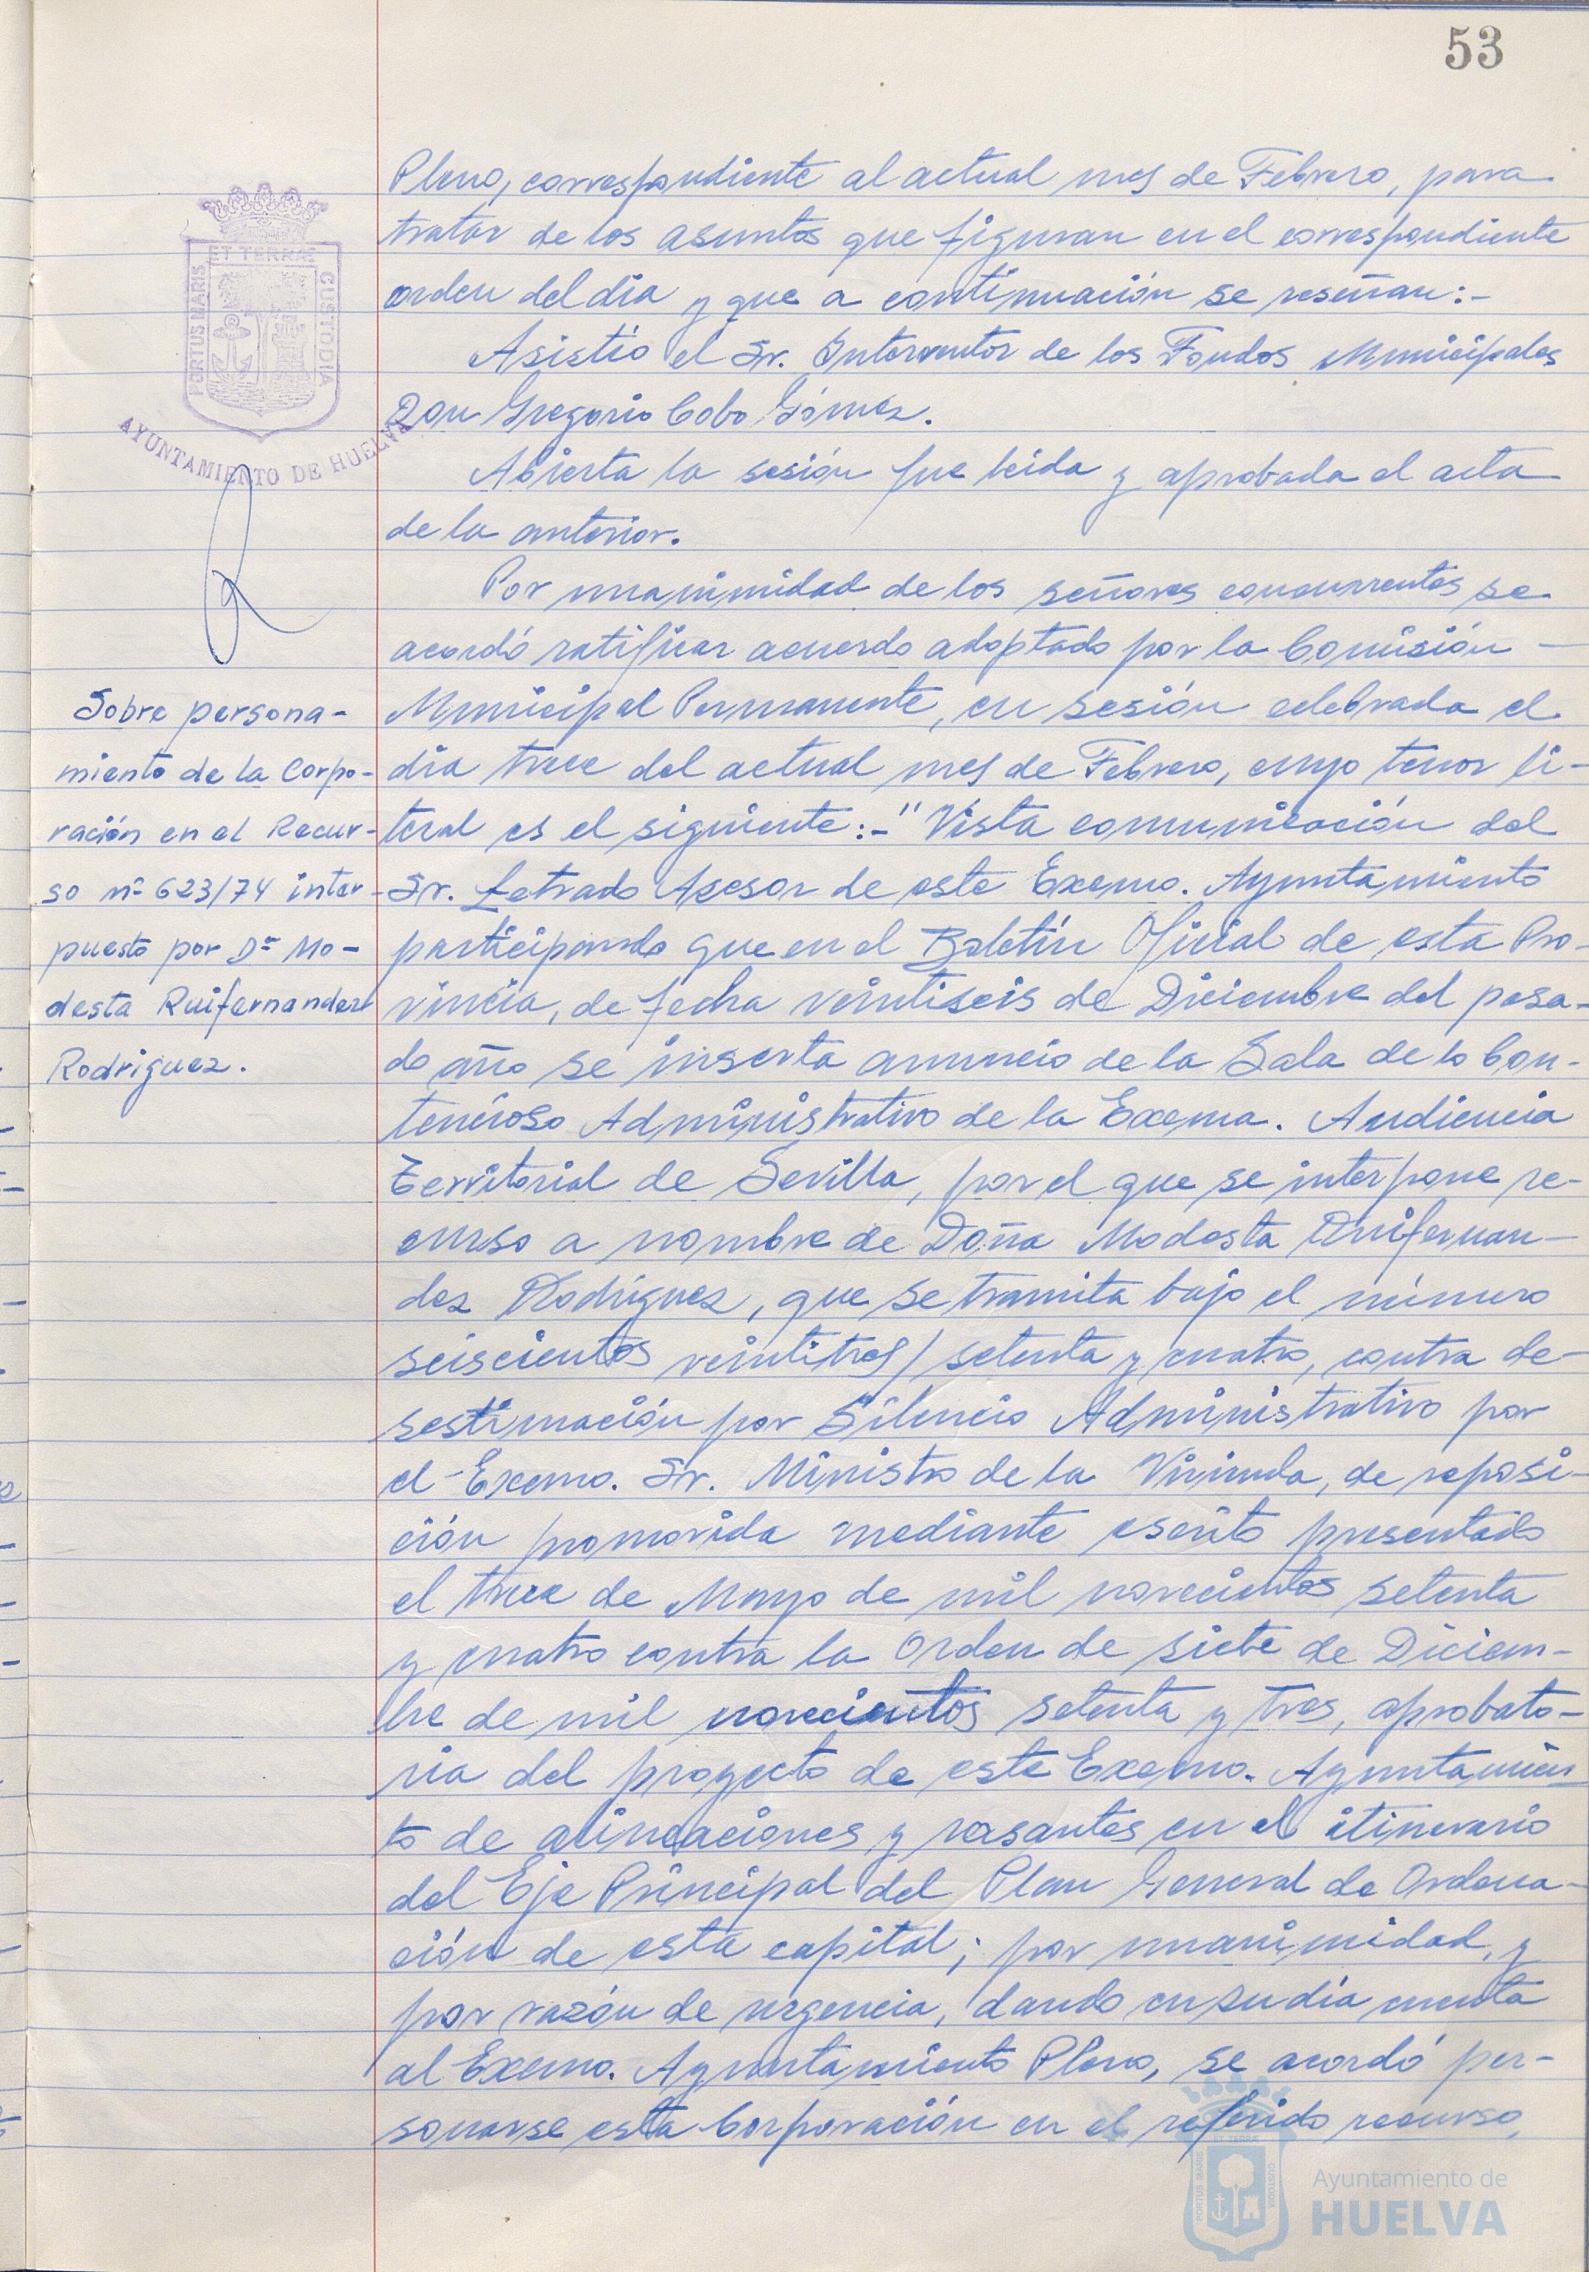 53
Pleno, correspondiente al actual mes de Febrero, para
tratar de los asuntos que figuran en el correspondiente
orden del dia y que a continuación se reseñan:-
Asistió el Sr. Interventor de los Fondos Municipales
Don Gregorio Cobo Gómez.
Abierta la sesión fue leida y aprobada el acta
de la anterior.
Por unanimidad de los señores concurrentes se
acordó ratificar acuerdo adoptado por la Comisión -
Municipal Permanente, en sesión celebrada el
dia trece del actual mes de Febrero, cuyo tenor li-
teral es el siguiente:-"Vista comunicación del
Sr. Letrado Asesor de este Excmo. Ayuntamiento
participando que en el Boletín Oficial de esta Pro-
vincia, de fecha veintiseis de Diciembre del pasa-
do año se inserta anuncio de la Sala de lo Con-
tencioso Administrativo de la Excma. Audiencia
Territorial de Sevilla, por el que se interpone re-
curso a nombre de Doña Modesta Ruifernan-
dez Rodríguez, que se tramita bajo el número
seiscientos veintitres/setenta y cuatro, contra de-
sestimación por Silencio Administrativo por
el Excmo. Sr. Ministro de la Vivienda, de reposi-
ción promovida mediante escrito presentado
el trece de Mayo de mil novecientos setenta
y cuatro contra la Orden de siete de Diciem-
bre de mil novecientos setenta y tres, aprobato-
ria del proyecto de este Excmo. Ayuntamien-
to de alineaciones y rasantes en el itinerario
del Eje Principal del Plan General de Ordena-
ción de esta capital; por unanimidad, y
por razón de urgencia, dando en su día cuenta
al Excmo. Ayuntamiento Pleno, se acordó per-
sonarse esta Corporación en el referido recurso,
Sobre persona-
miento de la Corpo-
ración en el Recur-
so nº 623/74 inter-
puesto por Dª Mo-
desta Ruifernandez
Rodriguez.
PORTUS MARIS
ET TERRÆ
CUSTODIA
AYUNTAMIENTO DE HUELVA
PORTUS MARIS
ET TERRÆ
CUSTODIA
Ayuntamiento de
HUELVA